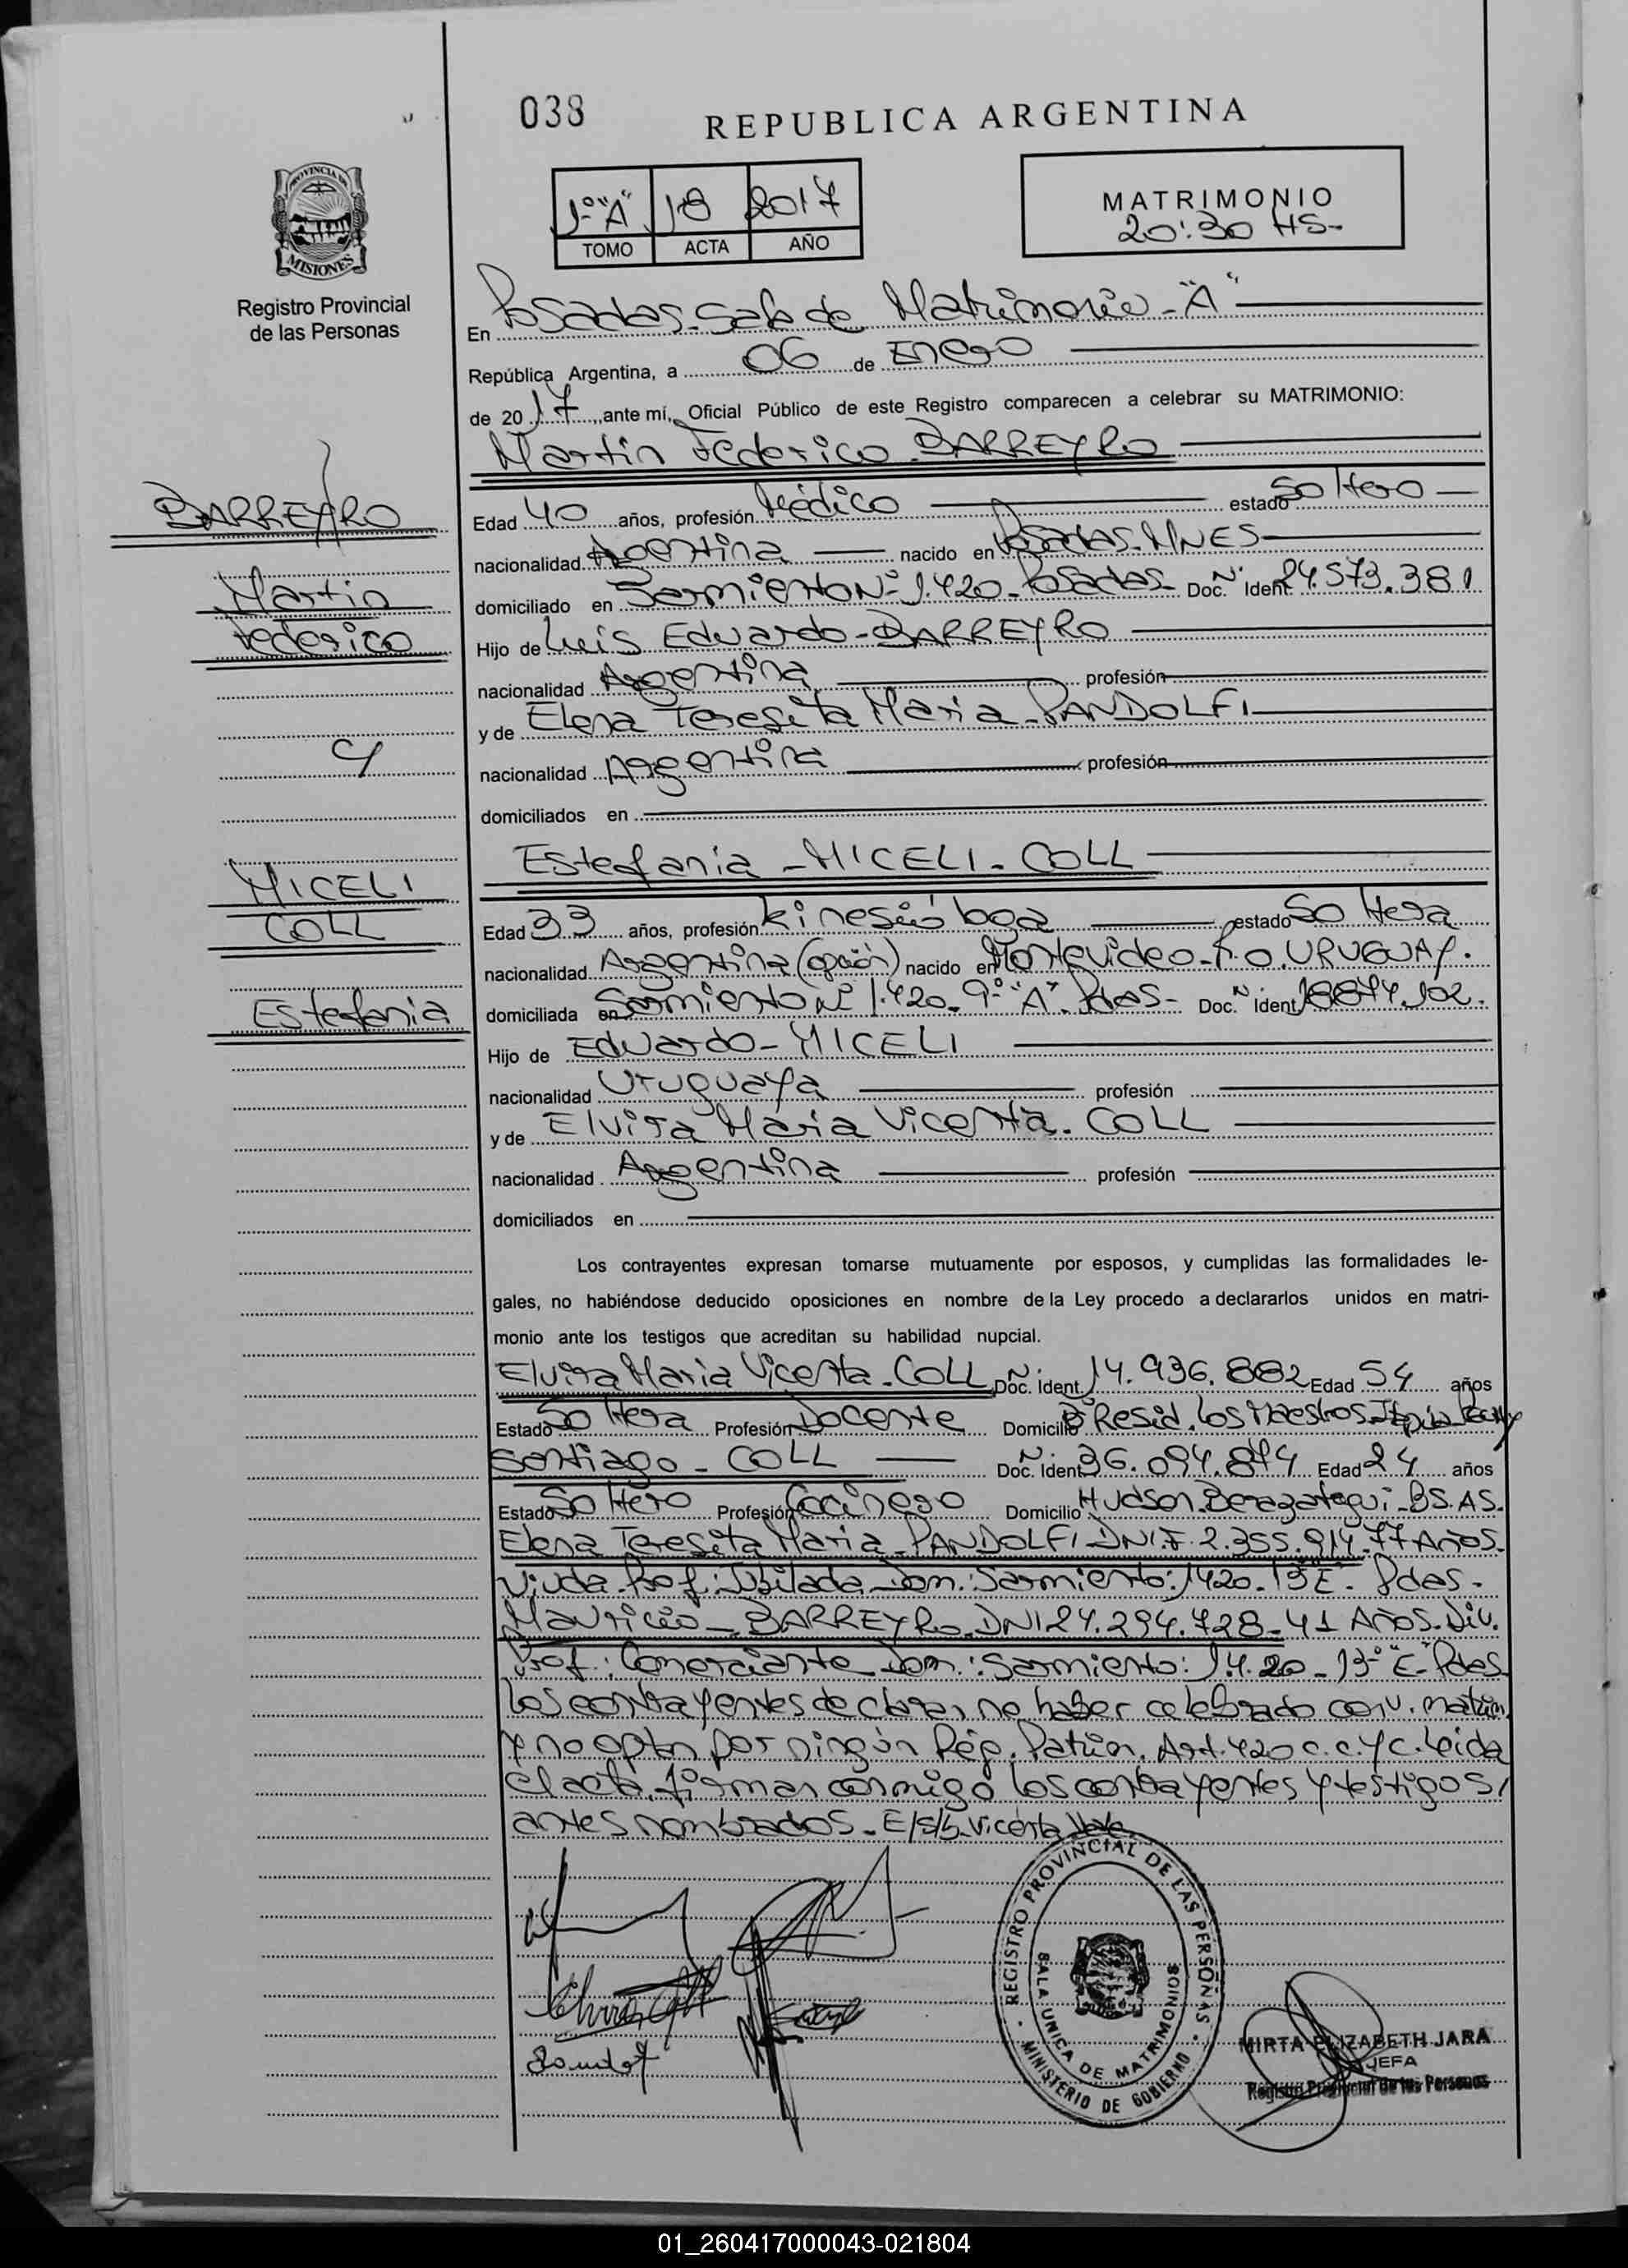 038
REPUBLICA ARGENTINA
1º "A" 18 2017
TOMO ACTA AÑO
MATRIMONIO
20:30 HS-
PROVINCIA DE
MISIONES
Registro Provincial
de las Personas
En Posadas - Sala de Matrimonio - "A"
República Argentina, a 06 de Enero
de 2017, ante mí, Oficial Público de este Registro comparecen a celebrar su MATRIMONIO:
Martin Federico BARREYRO
BARREYRO
Martin
Federico
Edad 40 años, profesión Médico estado Soltero
nacionalidad Argentina nacido en Posadas - MNES
domiciliado en Sarmiento Nº 1.420 - Posadas - Doc. Nº Ident 24.573.381
Hijo de Luis Eduardo - BARREYRO
nacionalidad Argentina profesión
y de Elena Teresita Maria - PANDOLFI
y
nacionalidad Argentina profesión
domiciliados en
Estefania - MICELI - COLL
MICELI
COLL
Estefania
Edad 33 años, profesión kinesióloga estado Soltera
nacionalidad Argentina (opción) nacido en Montevideo - R.O. URUGUAY.
domiciliada en Sarmiento Nº 1.420 - 9º "A". Pdas - Doc. Nº ident 18874.102.
Hijo de Eduardo - MICELI
nacionalidad Uruguaya profesión
y de Elvira Maria Vicenta - COLL
nacionalidad Argentina profesión
domiciliados en
Los contrayentes expresan tomarse mutuamente por esposos, y cumplidas las formalidades le-
gales, no habiéndose deducido oposiciones en nombre de la Ley procedo a declararlos unidos en matri-
monio ante los testigos que acreditan su habilidad nupcial.
Elvira Maria Vicenta - COLL Nº Doc. ident. 14.936.882 Edad 54 años
Estado Soltera Profesión Docente Domicilio Bº Resid. los Maestros
Santiago - COLL Nº Doc. Ident 36.094.874 Edad 24 años
Estado Soltero Profesión Cocinero Domicilio Hudson. Berazategui - BS. AS.
Elena Teresita Maria - PANDOLFI - DNI. F. 2.355.914 - 77 Años -
Viuda. Prof.: Jubilada - Dom.: Sarmiento: 1420 - 13 E - Pdas -
Mauricio - BARREYRO - DNI 24.294.728 - 41 Años. Div.
Prof.: Comerciante - Dom.: Sarmiento: 14.20 - 13º "E" - Pdas
los contrayentes declaran no haber celebrado conv. matrim.
y no optan por ningún Rég. Patrim. Art. 420 C.C.y C. Leida
el acta, firman conmigo los contrayentes y testigos
antes nombrados - E/S/b. Vicenta Vale
REGISTRO PROVINCIAL DE LAS PERSONAS
SALA UNICA DE MATRIMONIOS
MINISTERIO DE GOBIERNO
MIRTA ELIZABETH JARA
JEFA
Registro Provincial de las Personas
01_260417000043-021804